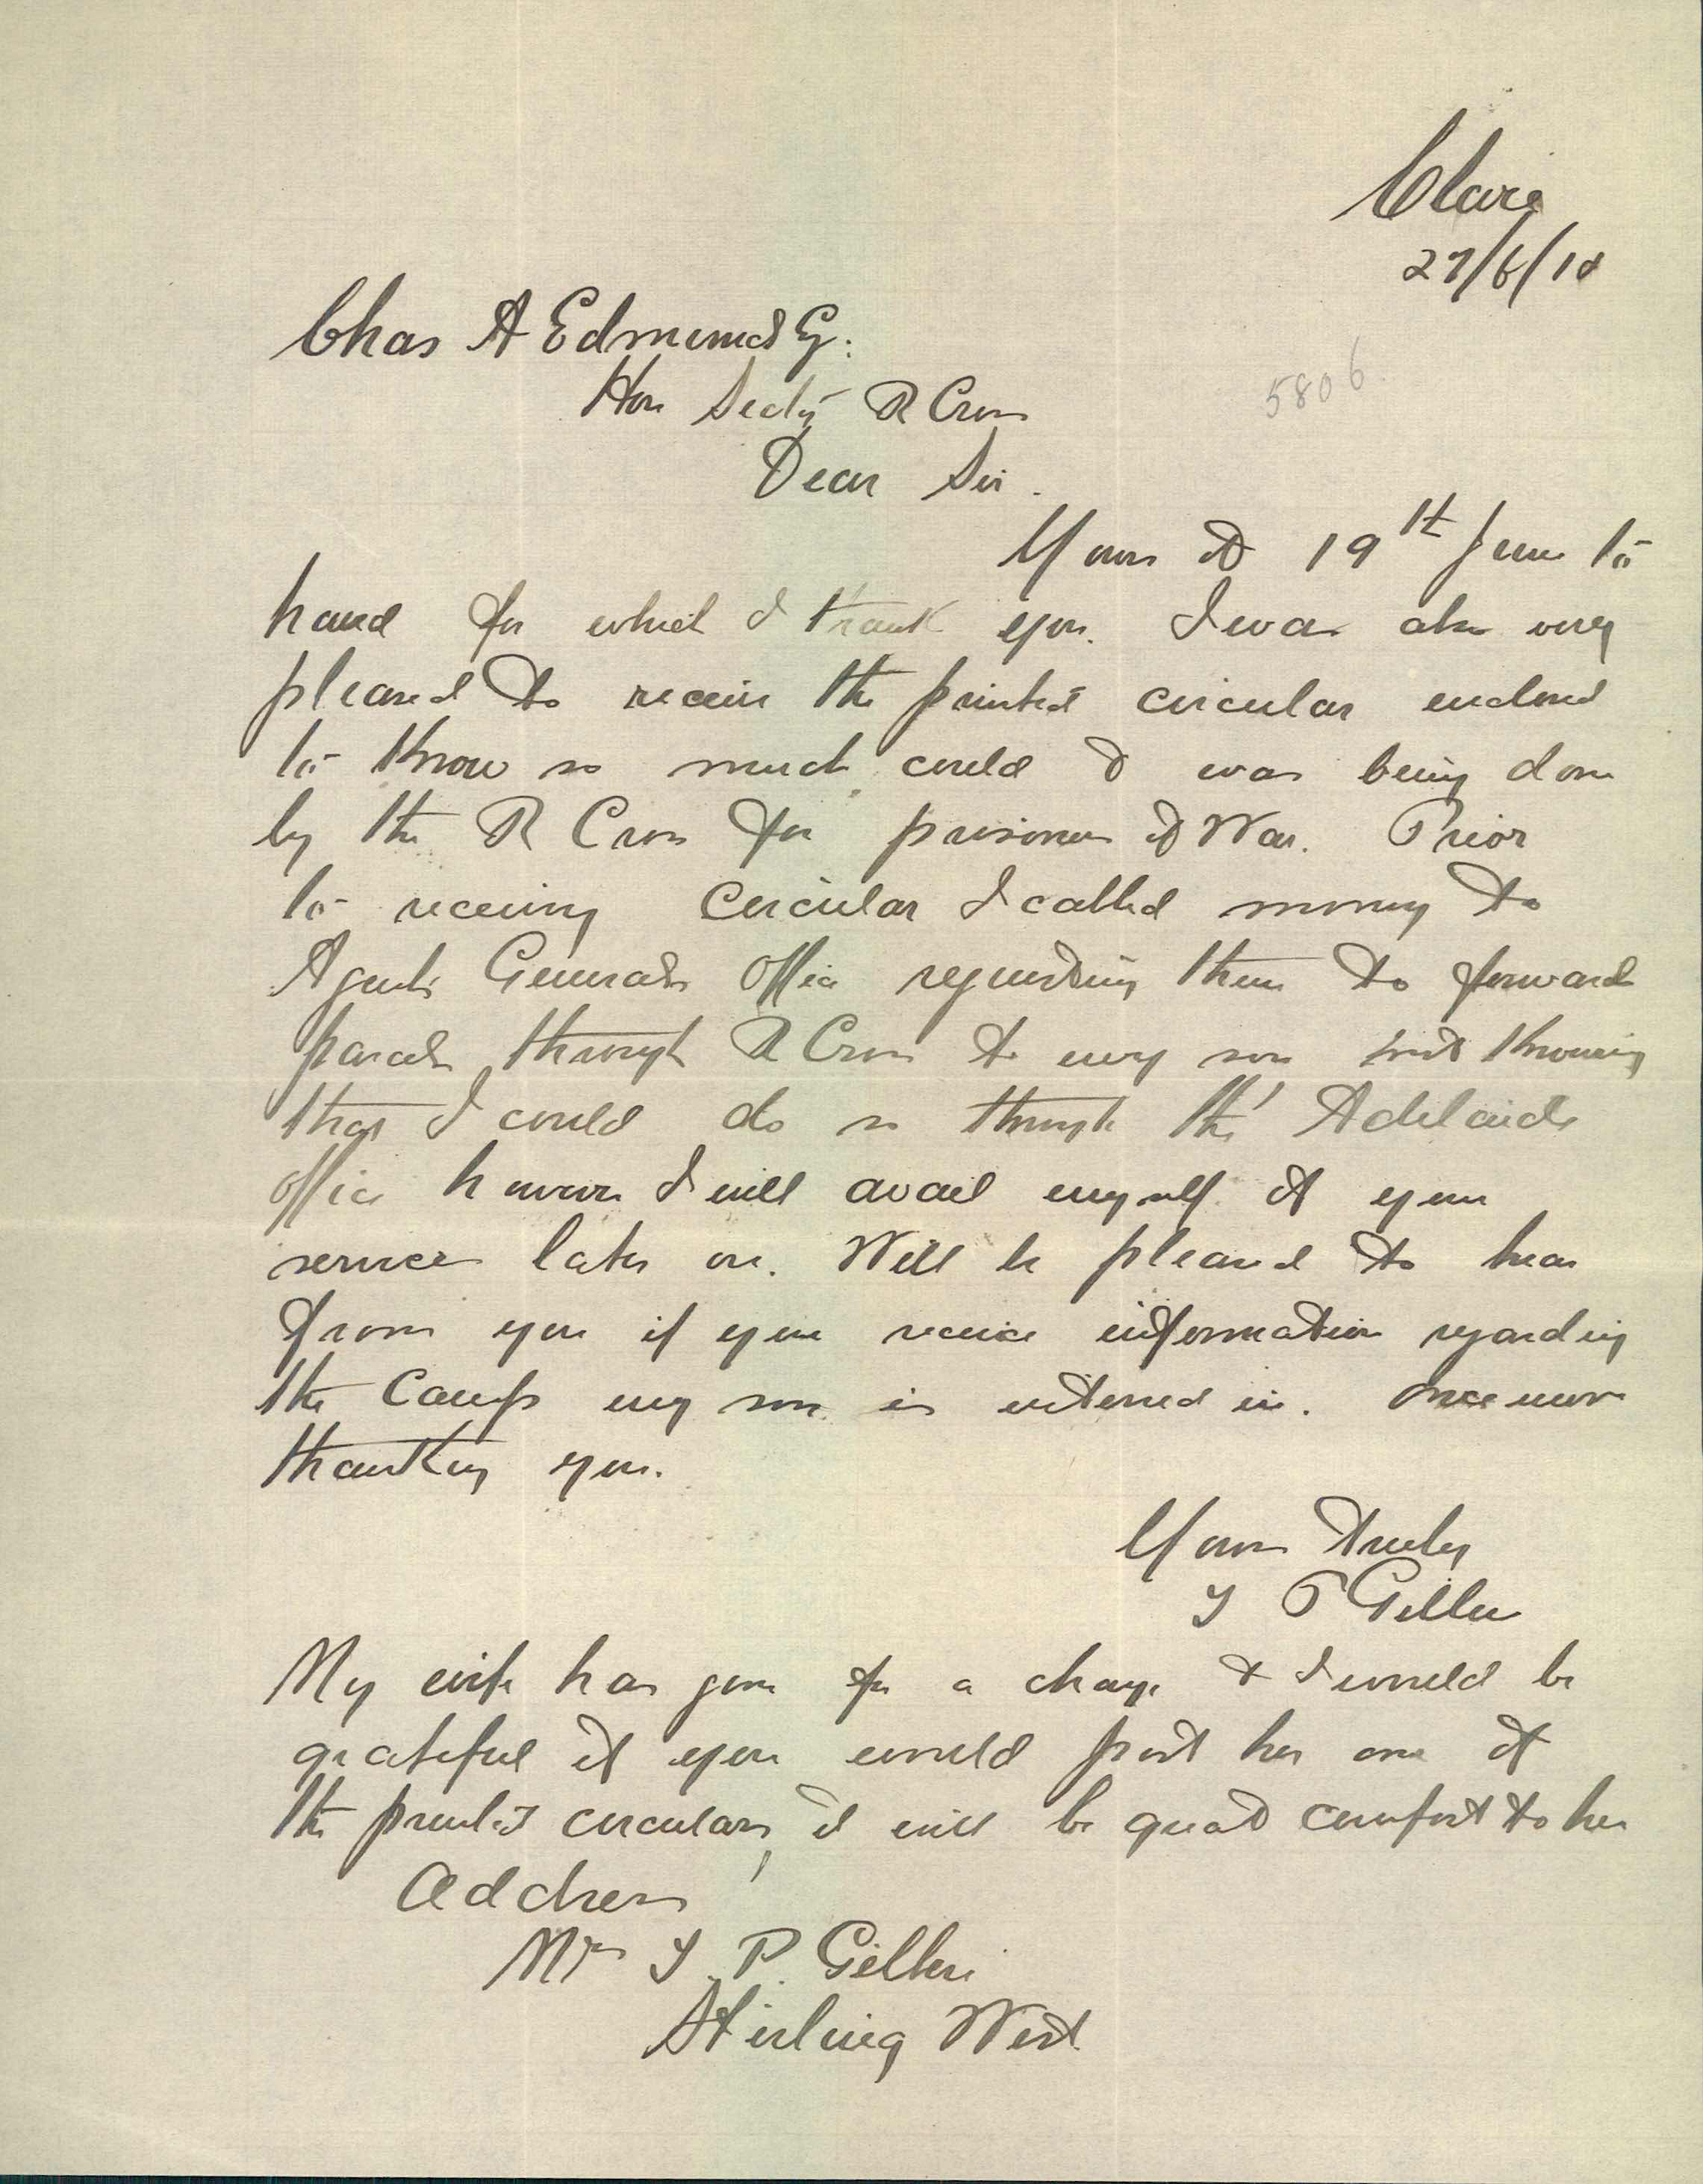 Clare
27/6/18
Chas A Edmunds Esq.
5806
Hon Secty R Cross
Dear Sir.
Yours of 19th June to
hand for which I thank you. I was also very
pleased to receive the printed circular enclosed
to know so much could & was being done
by the R Cross for prisoners of War. Prior
to receiving circular I cabled money to
Agents Generals Office requesting them to forward
parcels through R Cross to my son not knowing
that I could do so through the Adelaide
office however I will avail myself of your
services later on. Will be pleased to hear
from you if you receive information regarding
the Camp my son is interned in. Once more
thanking you.
Yours truly
T P Gillen
My wife has gone for a change & I would be
grateful if you would post her one of
the printed circulars, it will be great comfort to her
Address
Mrs T. P. Gillen
Stirling West